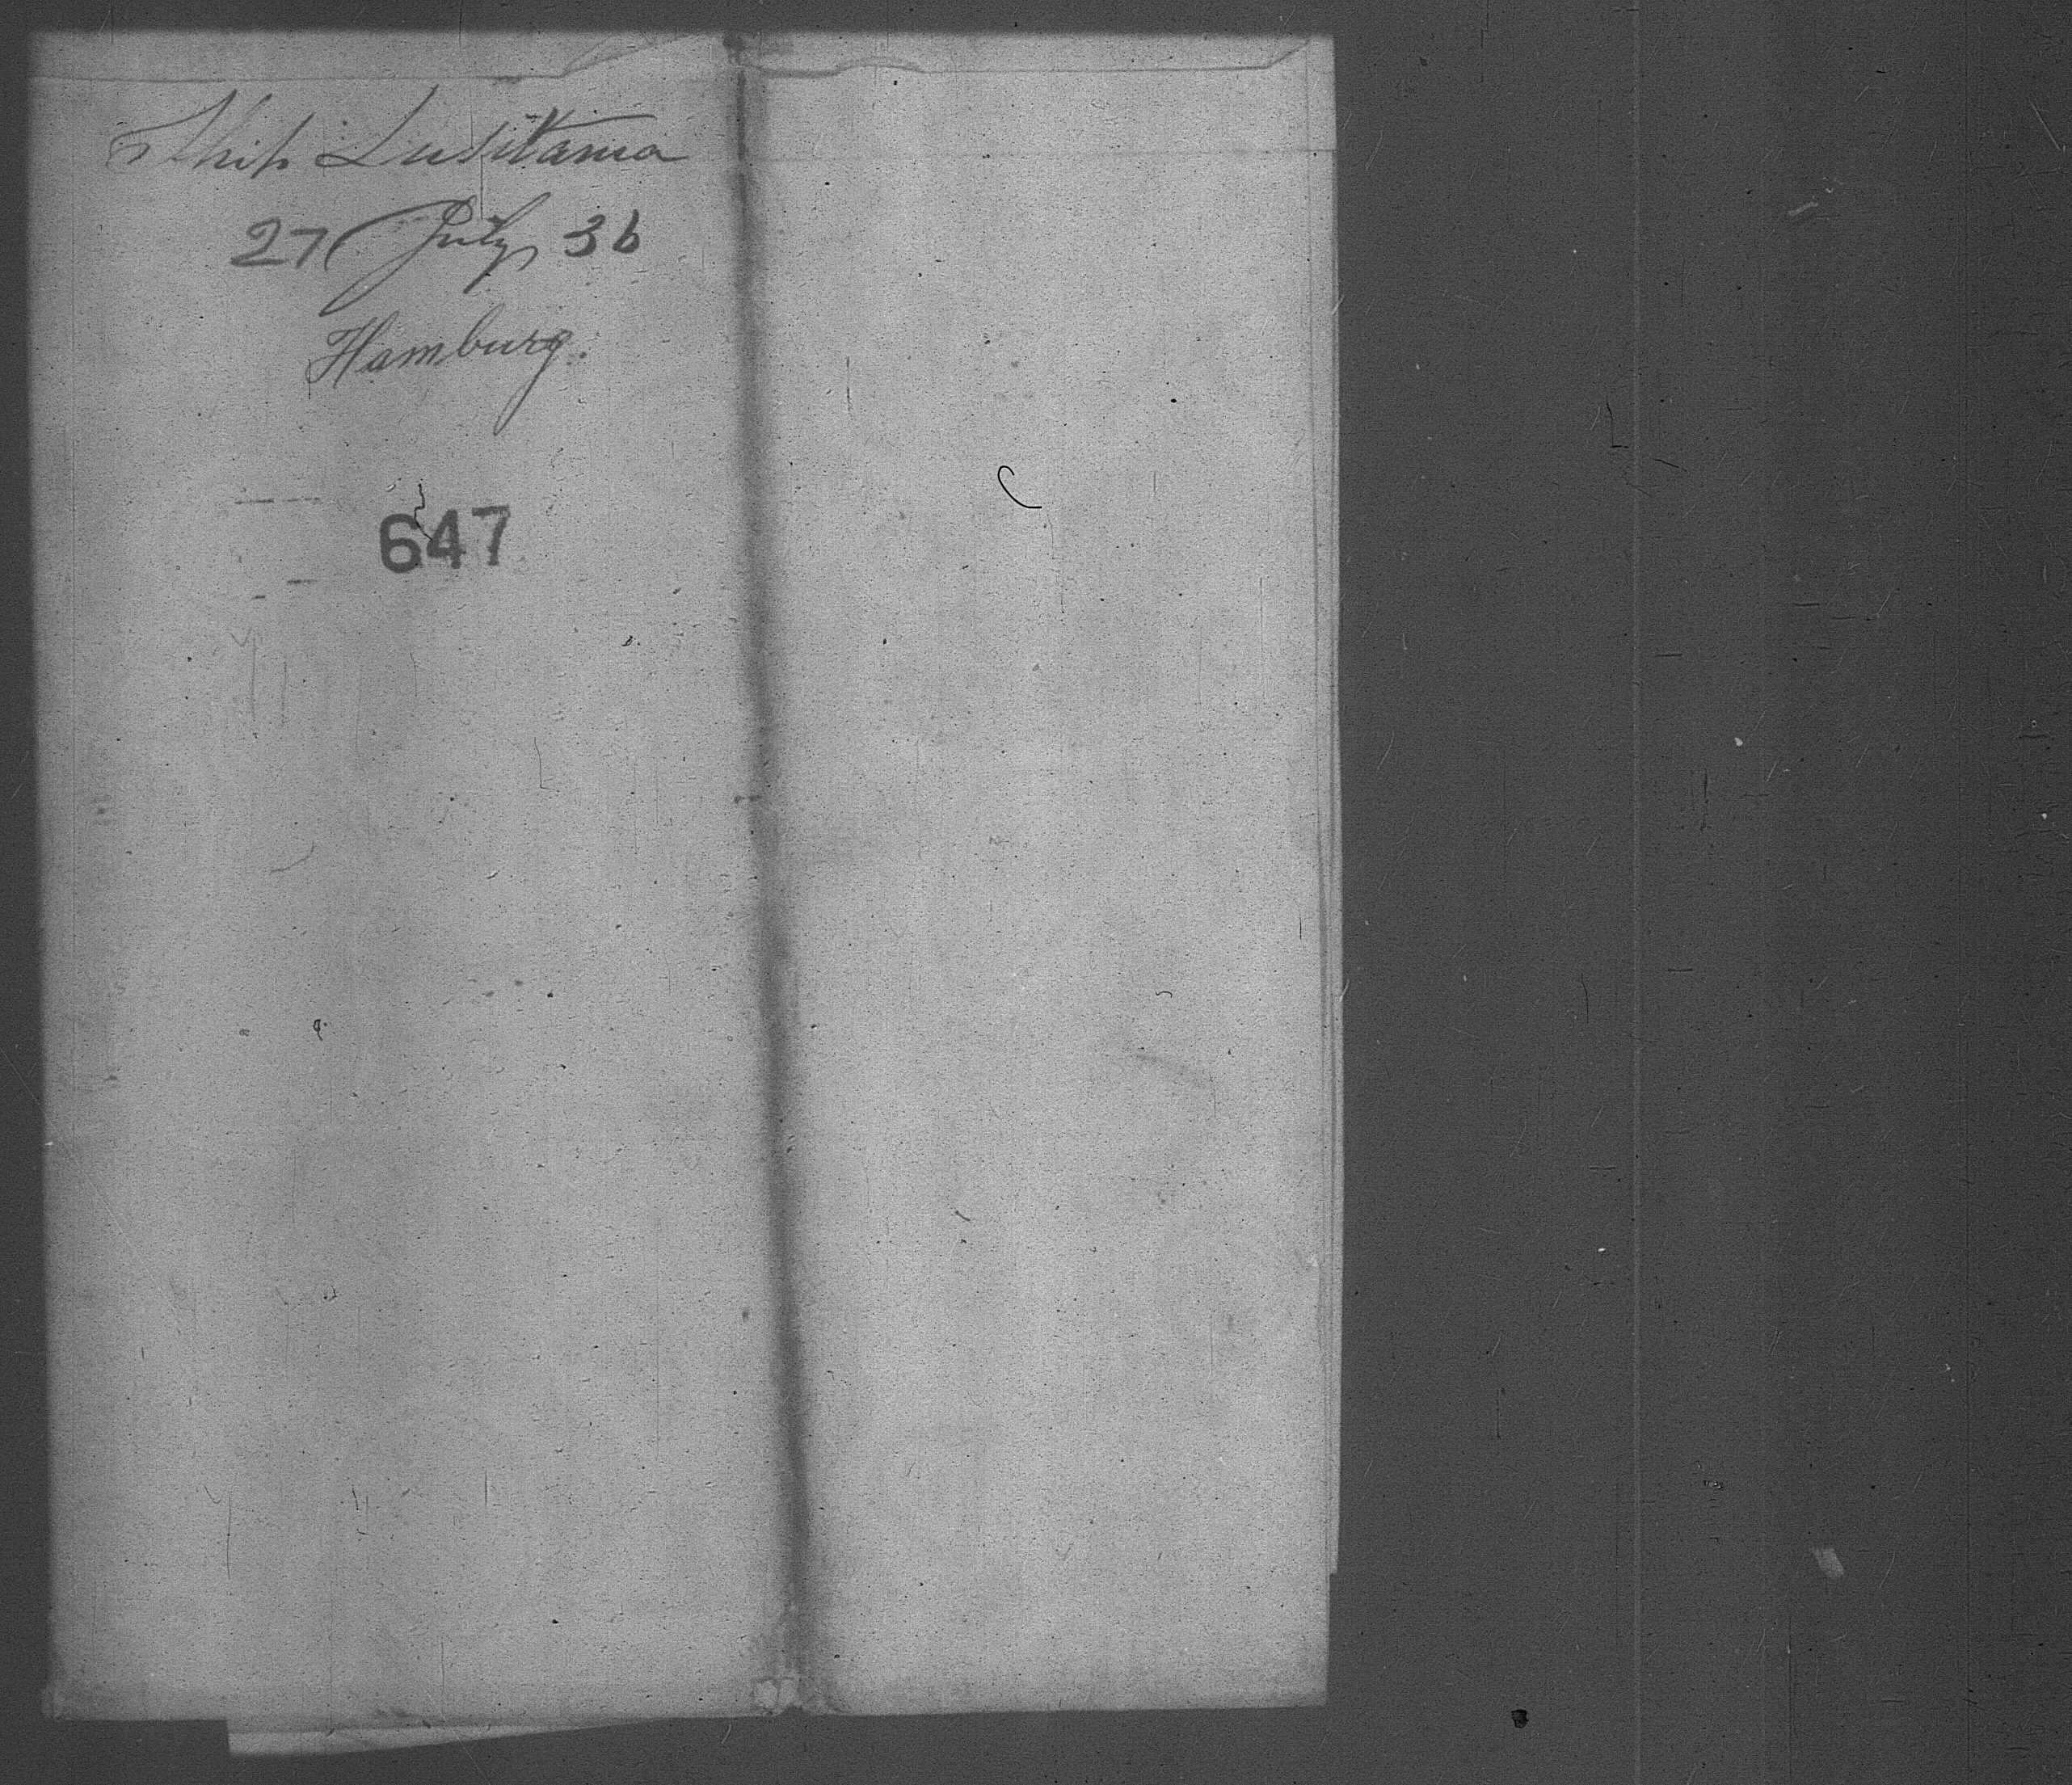 Ship Lusitania
27 July 36
Hamburg.
647